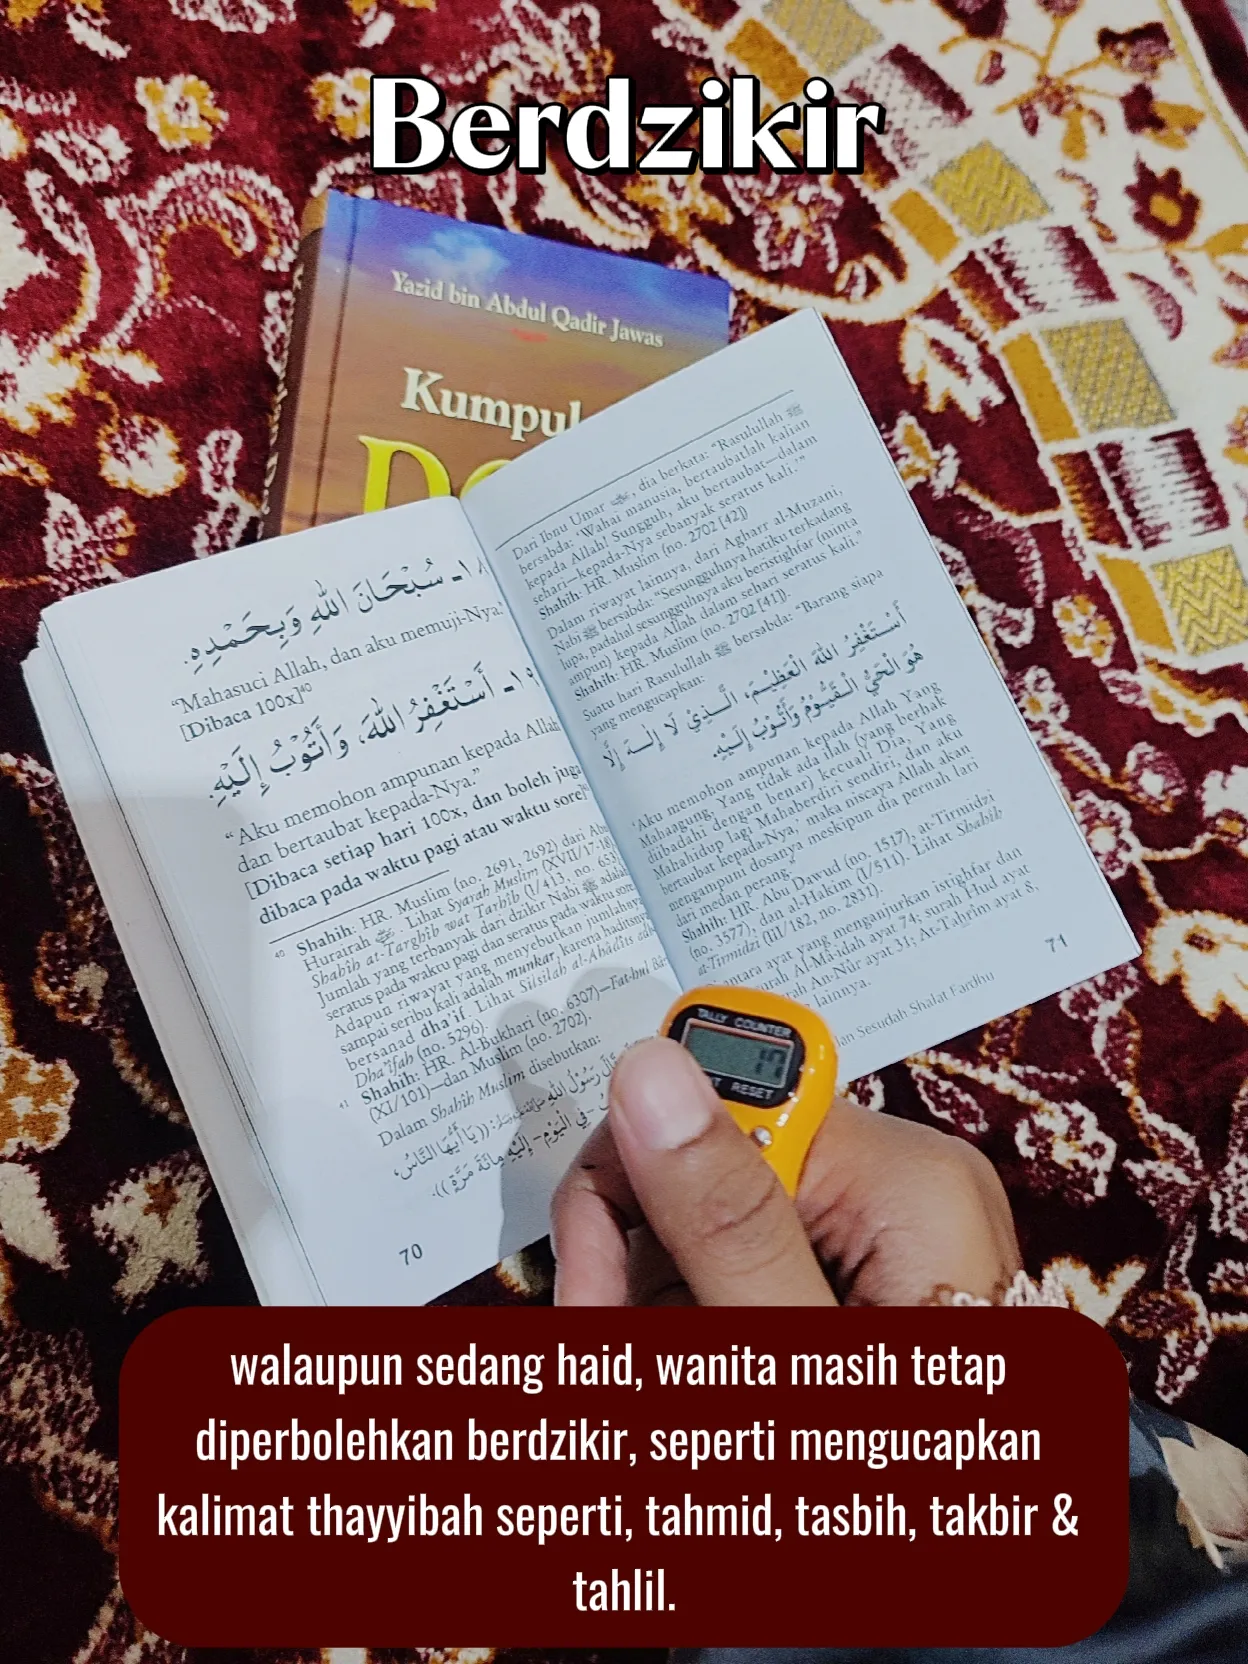 Berdzikir
Yazid bin Abdul Qadir Jawas
Kumpul
Do
١٨ـ سُبْحَانَ اللهِ وَبِحَمْدِهِ.
“Mahasuci Allah, dan aku memuji-Nya.”
[Dibaca 100x]⁴⁰
١٩ـ أَسْتَغْفِرُ اللهَ، وَأَتُوْبُ إِلَيْهِ.
“Aku memohon ampunan kepada Allah
dan bertaubat kepada-Nya.”
[Dibaca setiap hari 100x, dan boleh juga
dibaca pada waktu pagi atau waktu sore]⁴¹
⁴⁰ Shahih: HR. Muslim (no. 2691, 2692) dari Abu
Hurairah. Lihat Syarah Muslim (XVII/17-18),
Shahih at-Targhib wat Tarhib (I/413, no. 653).
Jumlah yang terbanyak dari dzikir Nabi ﷺ adalah
seratus pada waktu pagi dan seratus pada waktu sore.
Adapun riwayat yang menyebutkan jumlahnya
sampai seribu kali adalah munkar, karena haditsnya
bersanad dha'if. Lihat Silsilah al-Ahâdîts adh-
Dha'îfah (no. 5296).
⁴¹ Shahih: HR. Al-Bukhari (no. 6307)—Fat-hul Bâ-
(XI/101)—dan Muslim (no. 2702).
Dalam Shahih Muslim disebutkan:
قَالَ رَسُوْلُ اللهِ ﷺ: ((يَا أَيُّهَا النَّاسُ،
-فِي الْيَوْمِ- إِلَيْهِ مِائَةَ مَرَّةٍ)).
70
Dari Ibnu Umar, dia berkata: “Rasulullah ﷺ
bersabda: ‘Wahai manusia, bertaubatlah kalian
kepada Allah! Sungguh, aku bertaubat—dalam
sehari—kepada-Nya sebanyak seratus kali.’”
Shahih: HR. Muslim (no. 2702 [42])
Dalam riwayat lainnya, dari Agharr al-Muzani,
Nabi ﷺ bersabda: “Sesungguhnya hatiku terkadang
lupa, padahal sesungguhnya aku beristighfar (minta
ampun) kepada Allah dalam sehari seratus kali.”
Shahih: HR. Muslim (no. 2702 [41]).
Suatu hari Rasulullah ﷺ bersabda: “Barang siapa
yang mengucapkan:
أَسْتَغْفِرُ اللهَ الْعَظِيْمَ، الَّذِيْ لَا إِلَـهَ إِلَّا
هُوَ الْحَيُّ الْقَيُّوْمُ وَأَتُوْبُ إِلَيْهِ.
‘Aku memohon ampunan kepada Allah Yang
Mahaagung, Yang tidak ada ilah (yang berhak
diibadahi dengan benar) kecuali Dia, Yang
Mahahidup lagi Mahaberdiri sendiri, dan aku
bertaubat kepada-Nya,’ maka niscaya Allah akan
mengampuni dosanya meskipun dia pernah lari
dari medan perang.”
Shahih: HR. Abu Dawud (no. 1517), at-Tirmidzi
(no. 3577), dan al-Hakim (I/511). Lihat Shahih
at-Tirmidzi (III/182, no. 2831).
antara ayat yang menganjurkan istighfar dan
surah Al-Mâ-idah ayat 74; surah Hud ayat
An-Nûr ayat 31; At-Tahrîm ayat 8,
lainnya.
71
Sesudah Shalat Fardhu
TALLY COUNTER
RESET
walaupun sedang haid, wanita masih tetap
diperbolehkan berdzikir, seperti mengucapkan
kalimat thayyibah seperti, tahmid, tasbih, takbir &
tahlil.